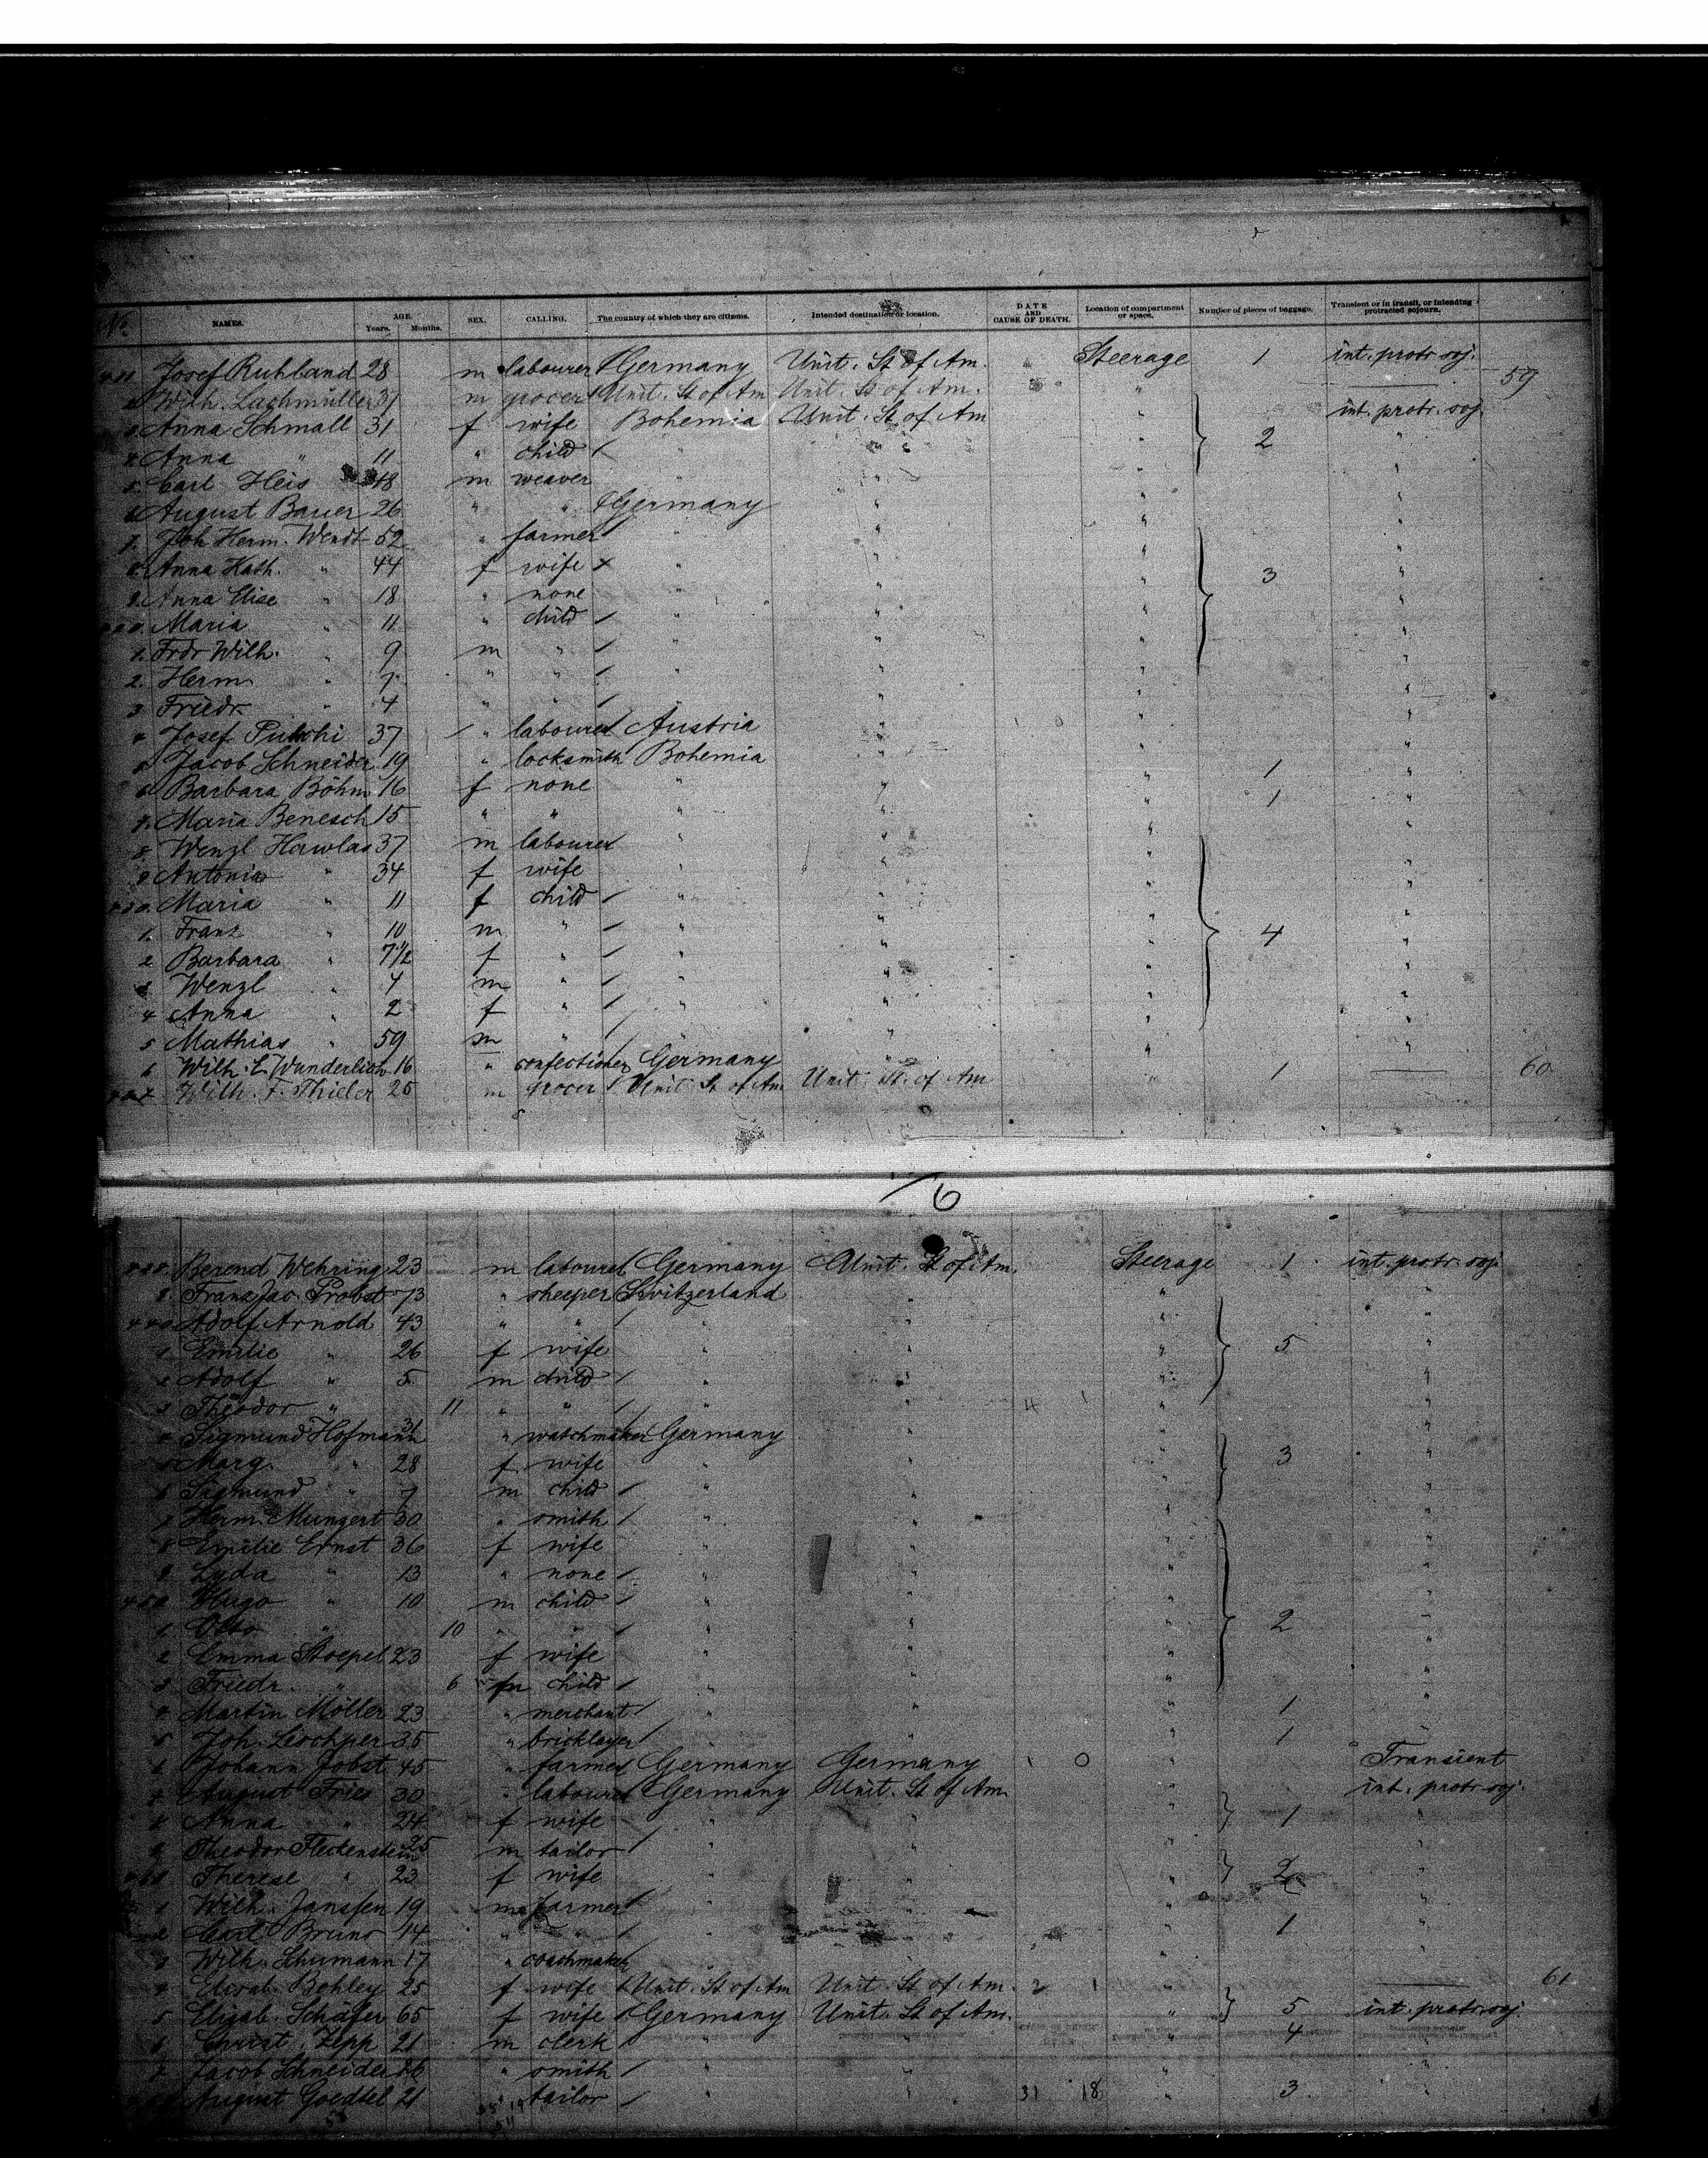 No. NAMES. AGE. Years. Months. SEX. CALLING. The country of which they are citizens. Intended destination or location. DATE AND CAUSE OF DEATH. Location of compartment or space. Number of pieces of baggage. Transient or in transit, or intending protracted sojourn.
Josef Ruhland 28 m labourer Germany Unit. St of Am. Steerage 1 int. protr soj.
Wilh. Lachmüller 31 m grocer Unit. St of Am Unit. St of Am. " —— 59
3 Anna Schmall 31 f wife Bohemia Unit. St of Am " 2 int. protr. soj.
4 Anna " 11 " child " " " "
5. Carl Heis 48 m weaver " " " "
6 August Bauer 26 " " Germany " " "
7. Joh Herm. Wendt 52 " farmer " " " "
8. Anna Kath. " 44 f wife " " " 3 "
9. Anna Elise " 18 " none " " " "
Maria " 11 " child " " " "
1. Frdr Wilh. " 9 m " " " " "
2. Herm " 7 " " " " " "
3 Friedr. " 4 " " " " " "
4 Josef 37 " labourer Austria " " "
5 Jacob Schneider 19 " locksmith Bohemia " " 1 "
6 Barbara Böhm 16 f none " " " 1 "
7. Maria Benesch 15 " " " " " "
8. Wenzl Hawlas 37 m labourer " " " "
9 Antonia " 34 f wife " " " "
Maria " 11 f child " " " "
1. Franz " 10 m " " " " 4 "
2 Barbara " 7 1/2 f " " " " "
3 Wenzl " 4 m " " " " "
4 Anna " 2 f " " " " "
5 Mathias " 59 m " " " " "
6 Wilh. E. Wunderlich 16 " confectioner Germany " " 1 ——
Wilh. F. Thieler 25 m grocer Unit. St of Am Unit. St. of Am " 60
6
Berend Wehring 23 m labourer Germany Unit. St of Am. Steerage 1 int. protr. soj.
9. Franz Jac. Probst 73 " sheeper Switzerland " " "
440 Adolf Arnold 43 " " " " " "
1 Emilie " 26 f wife " " " 5 "
2 Adolf " 5 m child " " " "
3 Theodor " 11 " " " " 4 " "
4 Sigmund Hofmann 31 " watchmaker Germany " " "
5 Marg. " 28 f wife " " " 3 "
6 Sigmund " 7 m child " " " "
7 Herm. Mungert 30 " smith " " " "
8 Emilie Ernst 36 f wife " " " "
9 Lyda " 13 " none " " " "
450 Hugo " 10 m child " " " "
1 Otto " 10 " " " " " 2 "
2 Emma Stoepel 23 f wife " " " "
3 Friedr. " 6 m child " " " "
4 Martin Möller 23 " merchant " " " 1 "
5 Joh. 35 " bricklayer " " " 1
6 Johann Jobst 45 " farmer Germany Germany 0 " Transient
7 August Fries 30 " labourer Germany Unit. St of Am " int. protr soj.
8 Anna " 24 f wife " " " 1 "
9 Theodor Fleckenstein 25 m tailor " " " "
460 Therese " 23 f wife " " " 2 "
1 Wilh. Janssen 19 m farmer " " " "
2 Carl Bruns 14 " " " " " 1 "
3 Wilh. Schumann 17 " coachmaker " " " "
4 Elisab. Bohley 25 f wife Unit. St of Am Unit. St of Am. 2 1 " —— 61
5 Elisab. Schäfer 65 f wife Germany Unit. St of Am. " 5 int. protr soj.
6 Christ Zepp 21 m clerk " " " 4 "
7 Jacob Schneider " smith " " " "
August Goedtel 21 " tailor " " 31 18 " 3 "